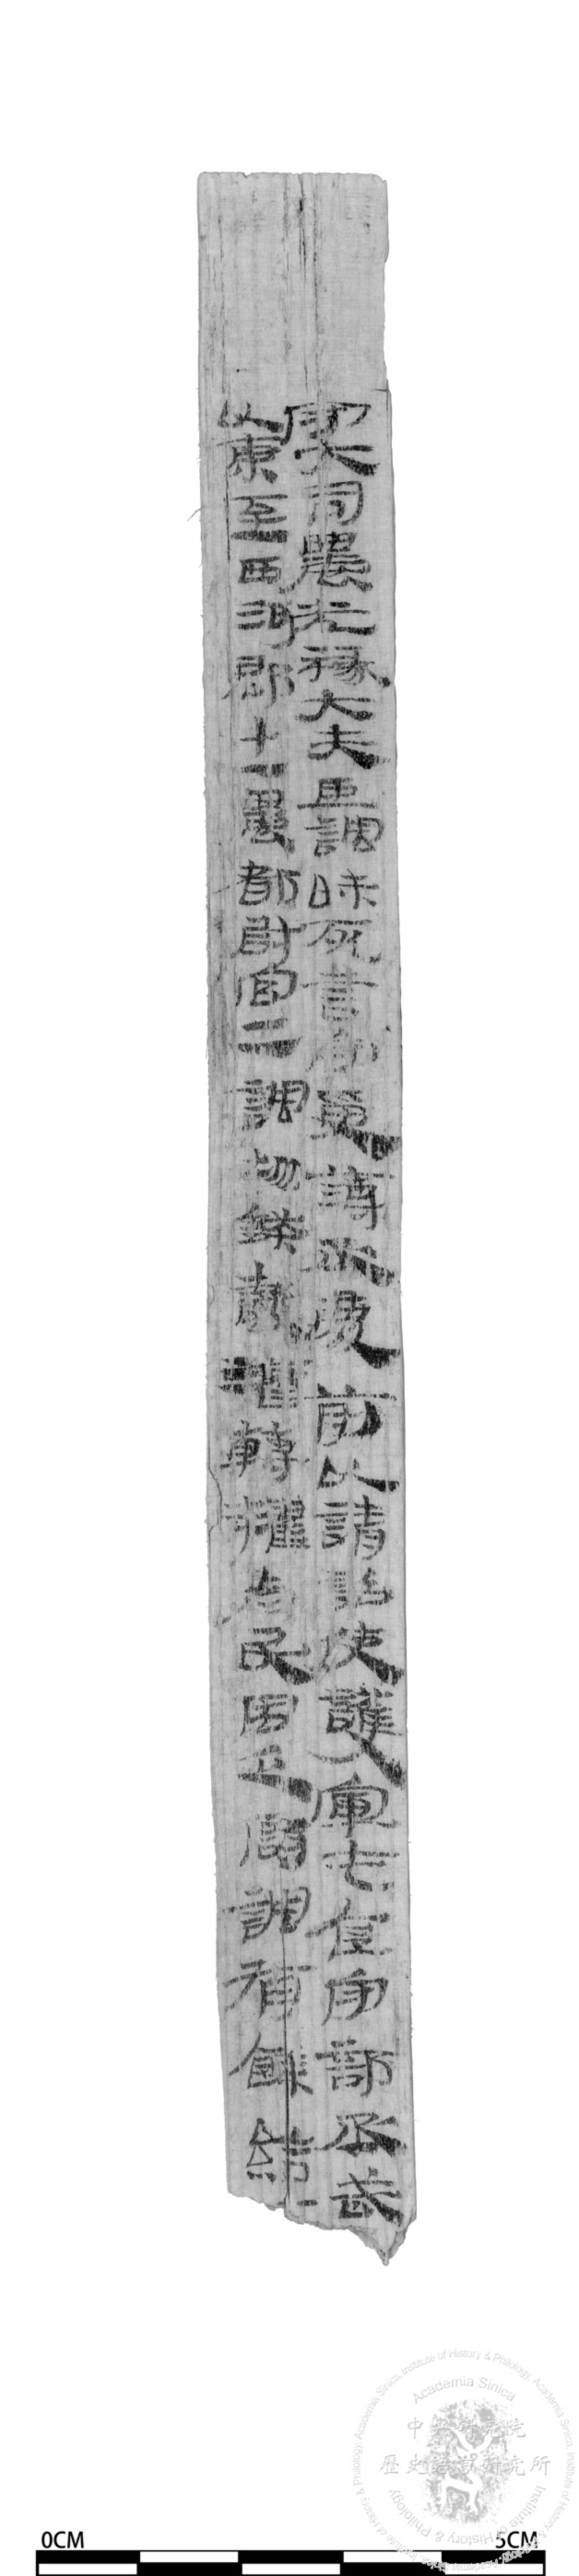 守大司農光祿大夫臣調昧死言守受簿丞慶前以請詔使護軍屯食守部丞武
以東至西河郡十一農都尉官二調物錢穀漕轉糴為民困乏啟調有餘給
Academia Sinica
中央研究院
歷史語言研究所
Institute of History & Philology
0CM 5CM